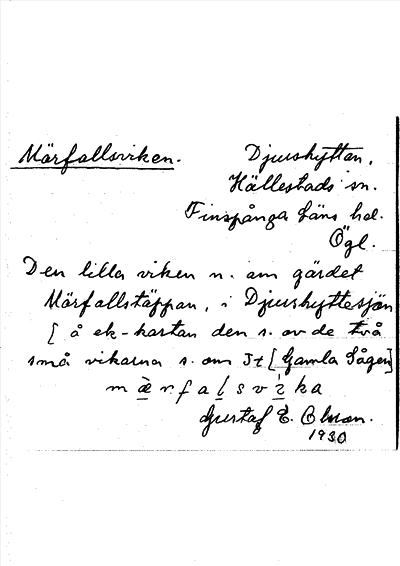 Mörfallsviken. Djurshyttan,
Hällestads sn.
Finspånga läns hd.
Ögl.
Den lilla viken n. om gärdet
Mörfallstäppan, i Djurshyttesjön
[ å ek-kartan den s. av de två
små vikarna s. om St [Gamla Sågen]
mœ̀rfalsvìka
Gustaf E. Olsson.
1930